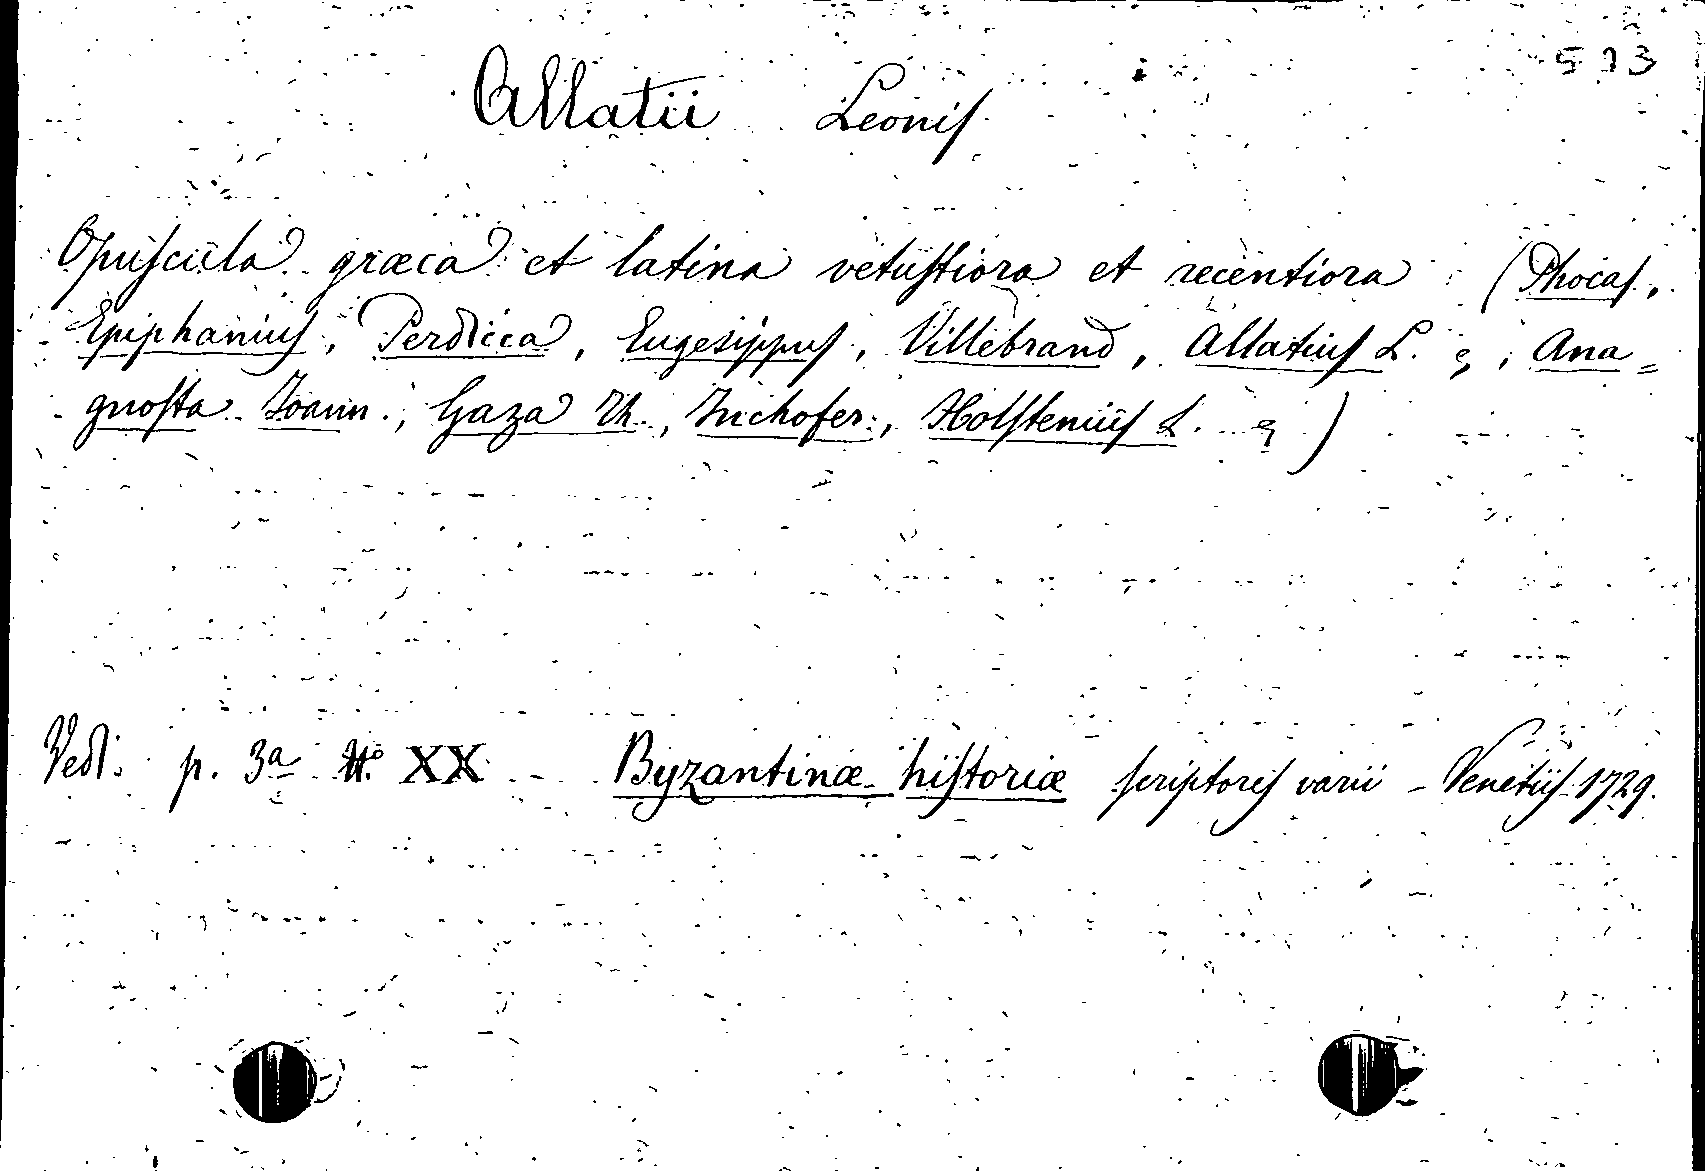 513
Allatii Leonis
Opuscula græca et latina vetustiora et recentiora (Phocas,
Epiphanius, Perdicca, Eugesippus, Villebrand, Allatius L. e, Ana=
gnosta Joann., Gaza Th., Inchofer, Holstenius L. e)
Vedi: p. 3a No XX - Byzantinæ historiæ scriptores varii - Venetiis 1729.